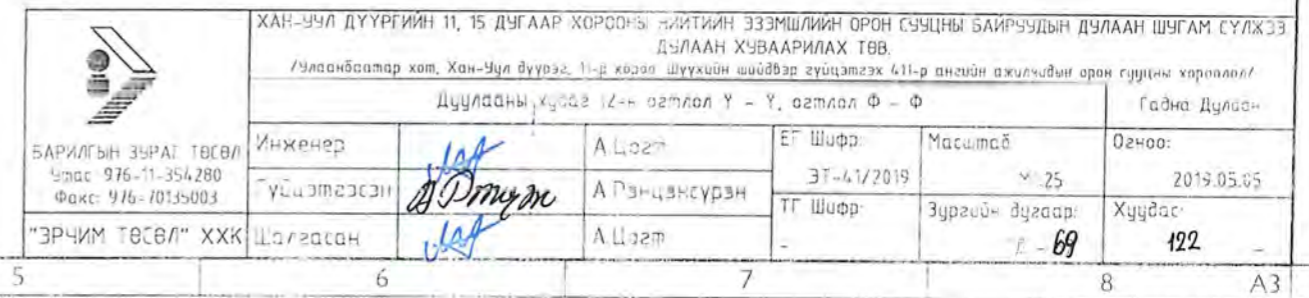 ХАН-УУЛ ДҮҮРГИЙН 11, 15 ДУГААР ХОРООНЫ НИЙТИЙН ЭЗЭМШЛИЙН ОРОН СУУЦНЫ БАЙРУУДЫН ДУЛААН ШУГАМ СҮЛЖЭЭ
ДУЛААН ХУВААРИЛАХ ТӨВ.
/Улаанбаатар хот, Хан-Уул дүүрэг, 11-р хороо Шүүхийн шийдвэр гүйцэтгэх 411-р ангийн ажилчидын орон сууцны хороолол/
Дуулааны худаг 12-н огтлол Y - Y, огтлол Ф - Ф
Гадна Дулаан
БАРИЛГЫН ЗУРАГ ТӨСӨЛ
Утас: 976-11-354280
Факс: 976-70135003
"ЭРЧИМ ТӨСӨЛ" ХХК
Инженер
А.Цогт
Гүйцэтгэсэн
А.Рэнцэнсүрэн
Шалгасан
А.Цогт
ЕГ Шифр:
ЭТ-41/2019
ТГ Шифр:
-
Масштаб
25
Зургийн дугаар:
- 69
Огноо:
2019.05.05
Хуудас:
122
5 6 7 8 А3